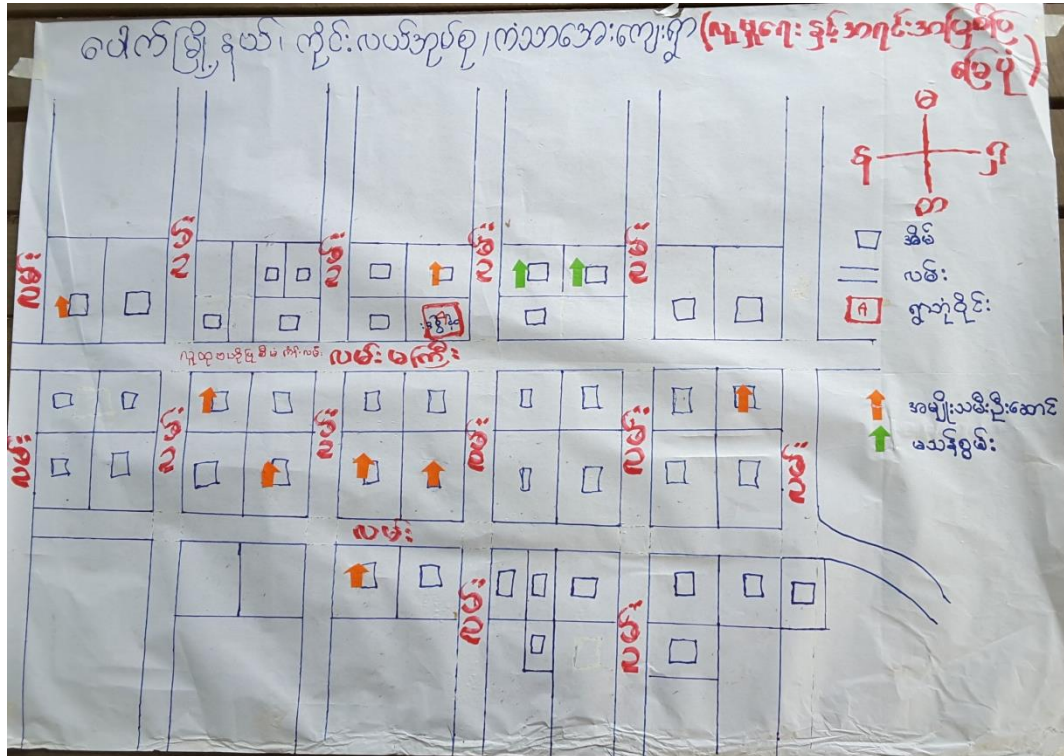 ပေါက်မြို့နယ်၊ ကိုင်းလယ်အုပ်စု၊ ကံသာအေးကျေးရွာ (လူမှုရေးနှင့်အရင်းအမြစ်ပြ
မြေပုံ)
မ
န
ရှ
တ
အိမ်
လမ်း
A ရွာဘုံဝိုင်း
အမျိုးသမီးဦးဆောင်
မသန်စွမ်း
လမ်း
လမ်း
လမ်း
လမ်း
လမ်း
A
လမ်းမကြီး
လမ်း
လမ်း
လမ်း
လမ်း
လမ်း
လမ်း
လမ်း
လမ်း
လမ်း